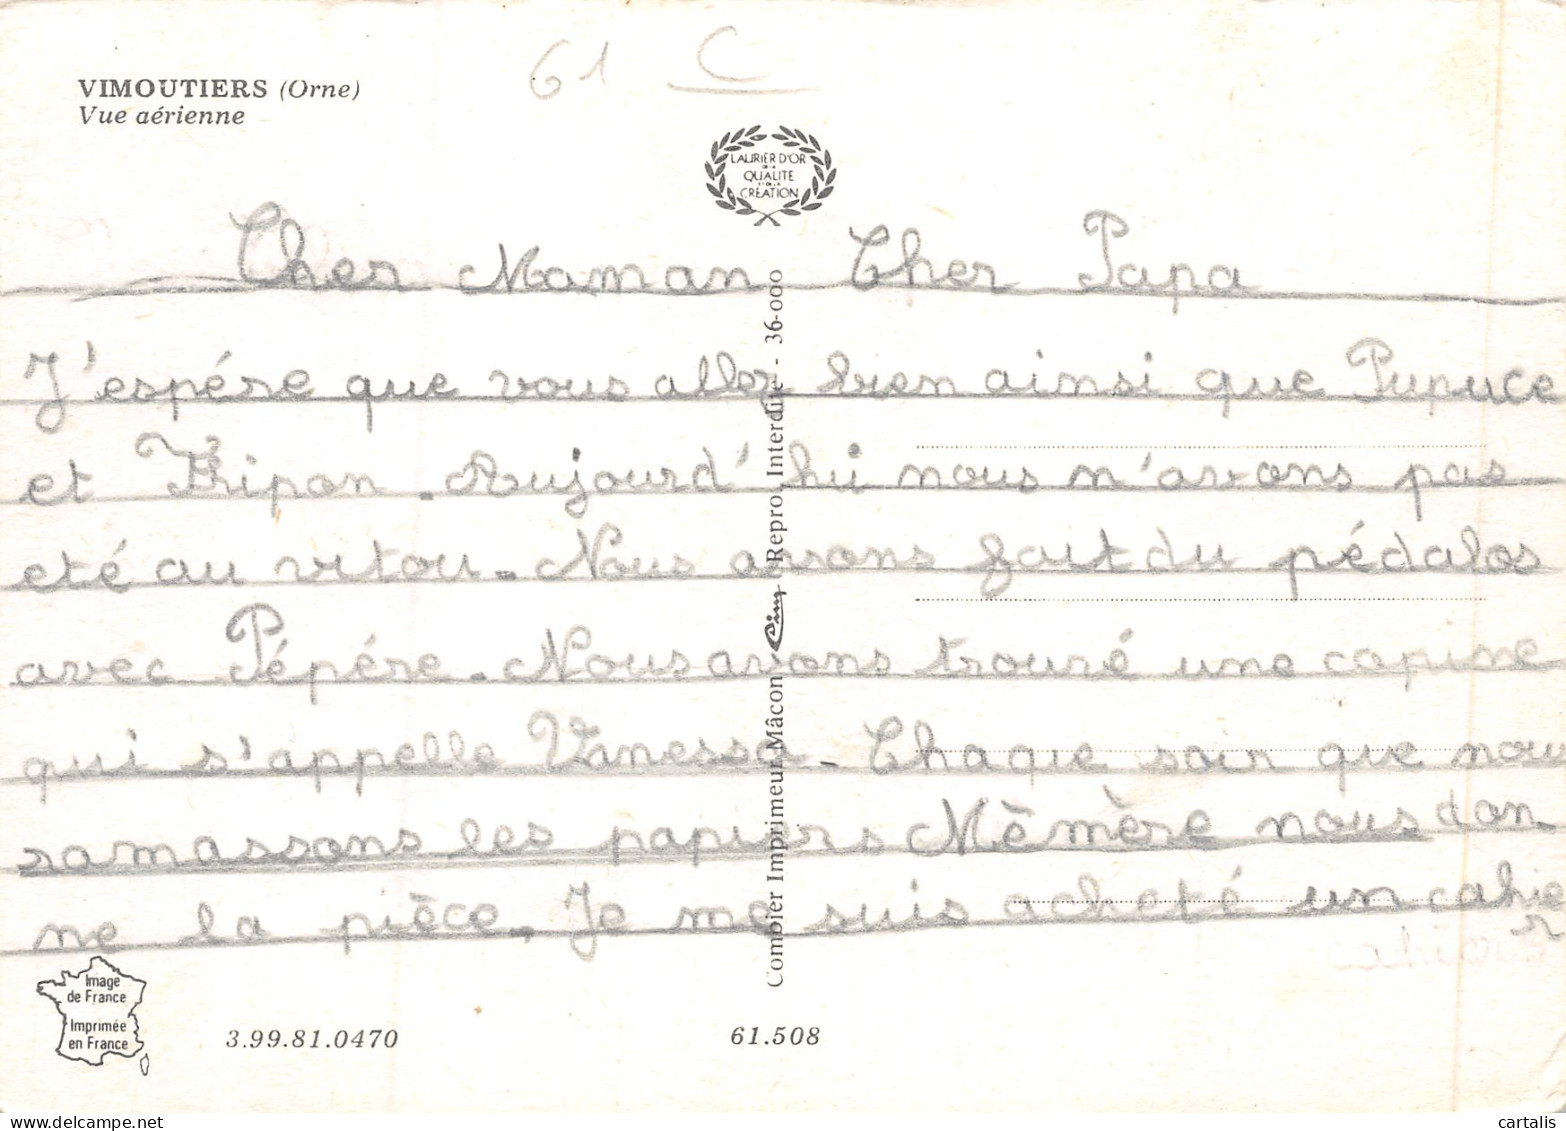 61 C
VIMOUTIERS (Orne)
Vue aérienne
LAURIER D'OR
DE LA
QUALITE
ET DE LA
CREATION
Cher Maman Cher Papa
J'espére que vous aller bien ainsi que Pupuce
et Fripon. Aujourd'hui nous n'avons pas
eté au vitou. Nous avons fait du pédalos
avec Pépére. Nous avons trouvé une copine
qui s'appelle Vanessa. Chaque soir que nous
ramassons les papiers Mèmère nous don
ne la pièce. Je me suis acheté un cahie
r
Combier Imprimeur Mâcon Cim Repro. Interdite - 36-000
Image
de France
Imprimée
en France
3.99.81.0470
61.508
cartalis